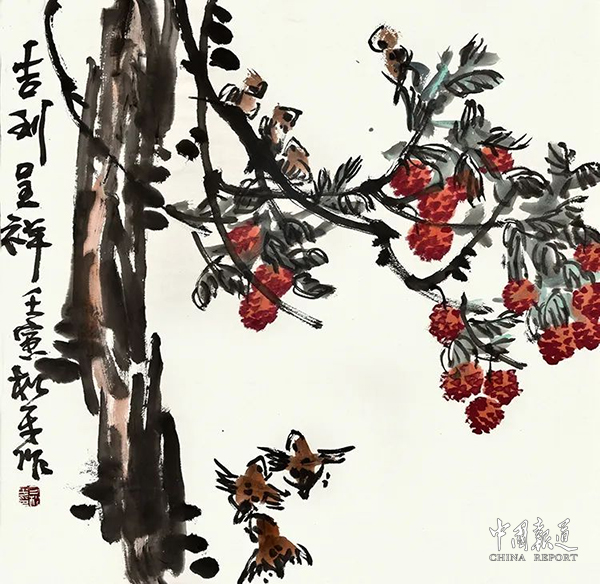 吉利呈祥 壬寅
中国報道
CHINA REPORT